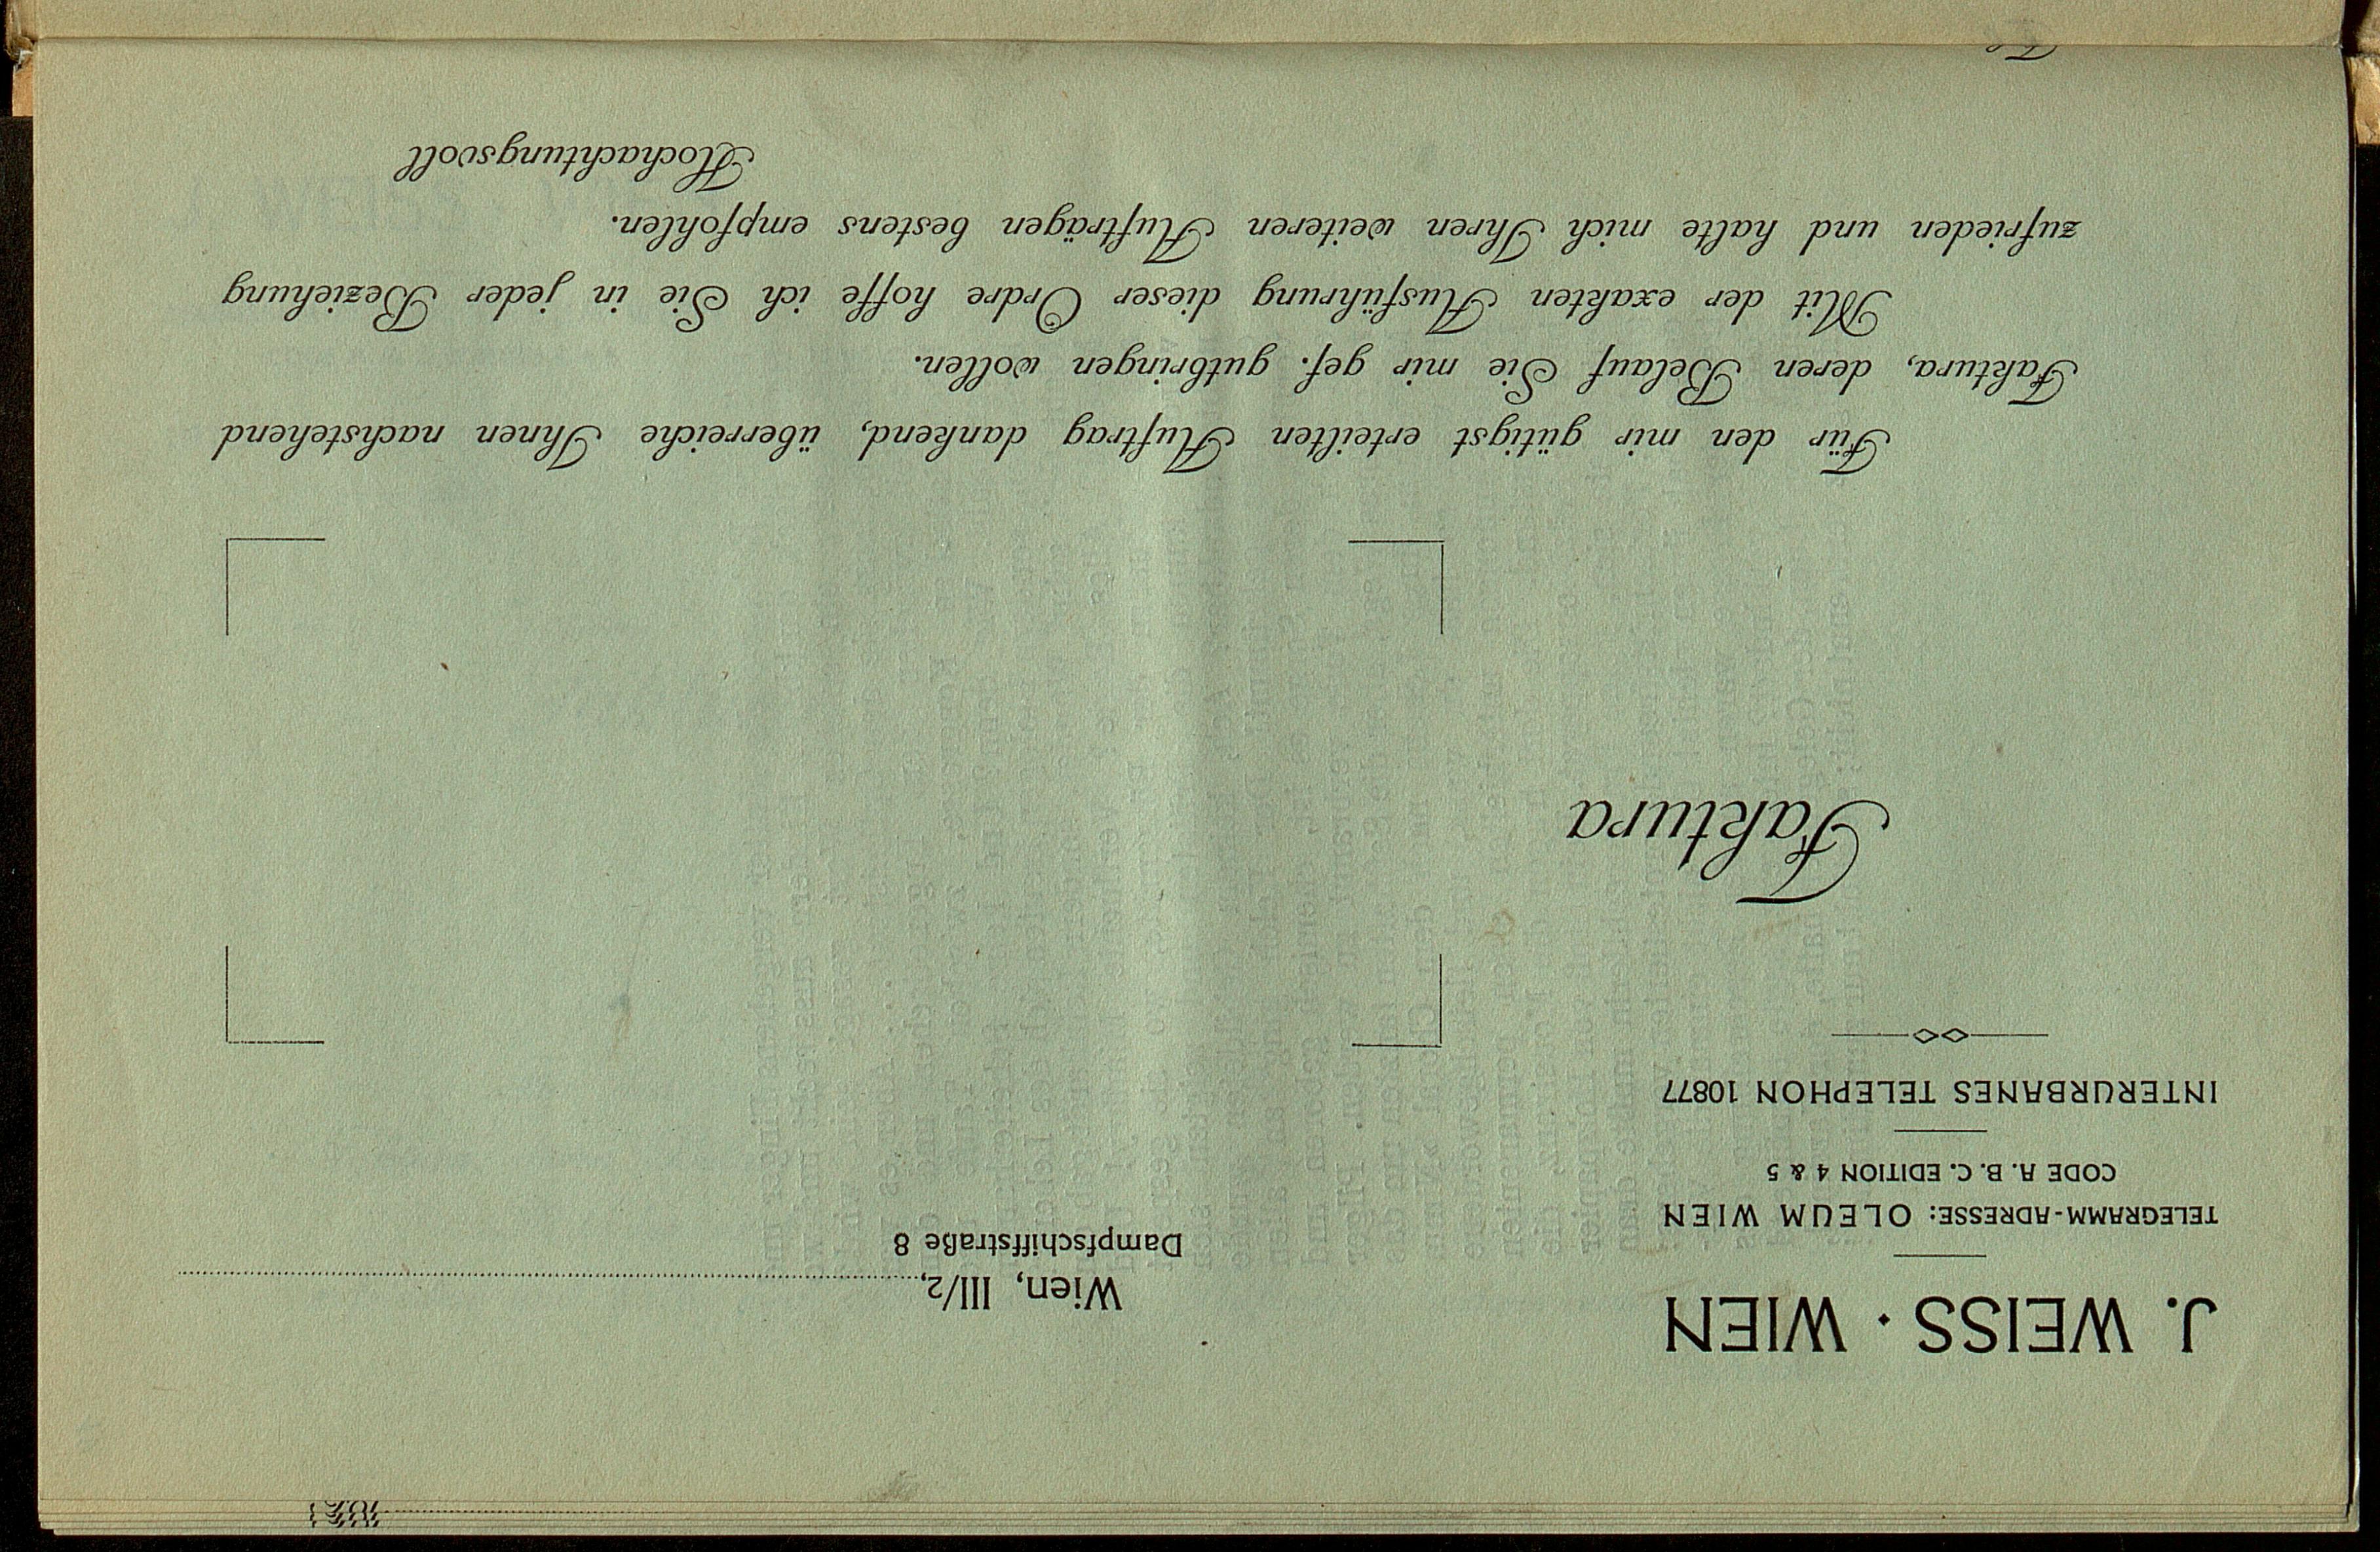 J. WEISS · WIEN
TELEGRAMM-ADRESSE: OLEUM WIEN
CODE A. B. C. EDITION 4 & 5
INTERURBANES TELEPHON 10877
Wien, III/2,
Dampfschiffstraße 8
Faktura
Für den mir gütigst erteilten Auftrag dankend, überreiche Ihnen nachstehend
Faktura, deren Belauf Sie mir gef. gutbringen wollen.
Mit der exakten Ausführung dieser Ordre hoffe ich Sie in jeder Beziehung
zufrieden und halte mich Ihren weiteren Aufträgen bestens empfohlen.
Hochachtungsvoll